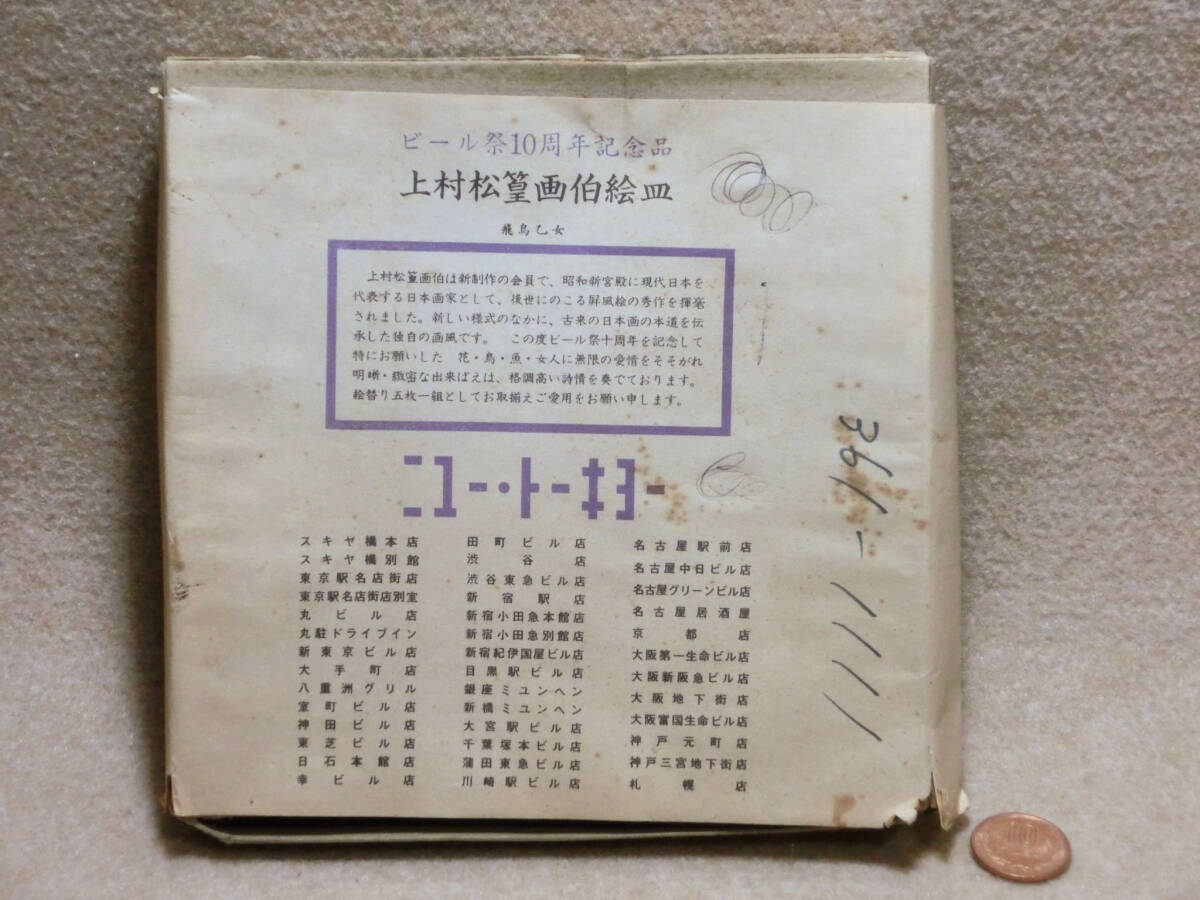 ビール祭10周年記念品
上村松篁画伯絵皿
飛鳥乙女
上村松篁画伯は新制作の会員で、昭和新宮殿に現代日本を
代表する日本画家として、後世にのこる屏風絵の秀作を揮毫
されました。新しい様式のなかに、古来の日本画の本道を伝
承した独自の画風です。　この度ビール祭十周年を記念して
特にお願いした　花・鳥・魚・女人に無限の愛情をそそがれ
明晰・緻密な出来ばえは、格調高い詩情を奏でております。
絵替り五枚一組としてお取揃えご愛用をお願い申します。
ニユー・トーキヨー
スキヤ橋本店
スキヤ橋別館
東京駅名店街店
東京駅名店街店別室
丸ビル店
丸駐ドライブイン
新東京ビル店
大手町店
八重洲グリル
室町ビル店
神田ビル店
東芝ビル店
日石本館店
幸ビル店
田町ビル店
渋谷店
渋谷東急ビル店
新宿駅店
新宿小田急本館店
新宿小田急別館店
新宿紀伊国屋ビル店
目黒駅ビル店
銀座ミユンヘン
新橋ミユンヘン
大宮駅ビル店
千葉塚本ビル店
蒲田東急ビル店
川崎駅ビル店
名古屋駅前店
名古屋中日ビル店
名古屋グリーンビル店
名古屋居酒屋
京都店
大阪第一生命ビル店
大阪新阪急ビル店
大阪地下街店
大阪富国生命ビル店
神戸元町店
神戸三宮地下街店
札幌店
361-1111